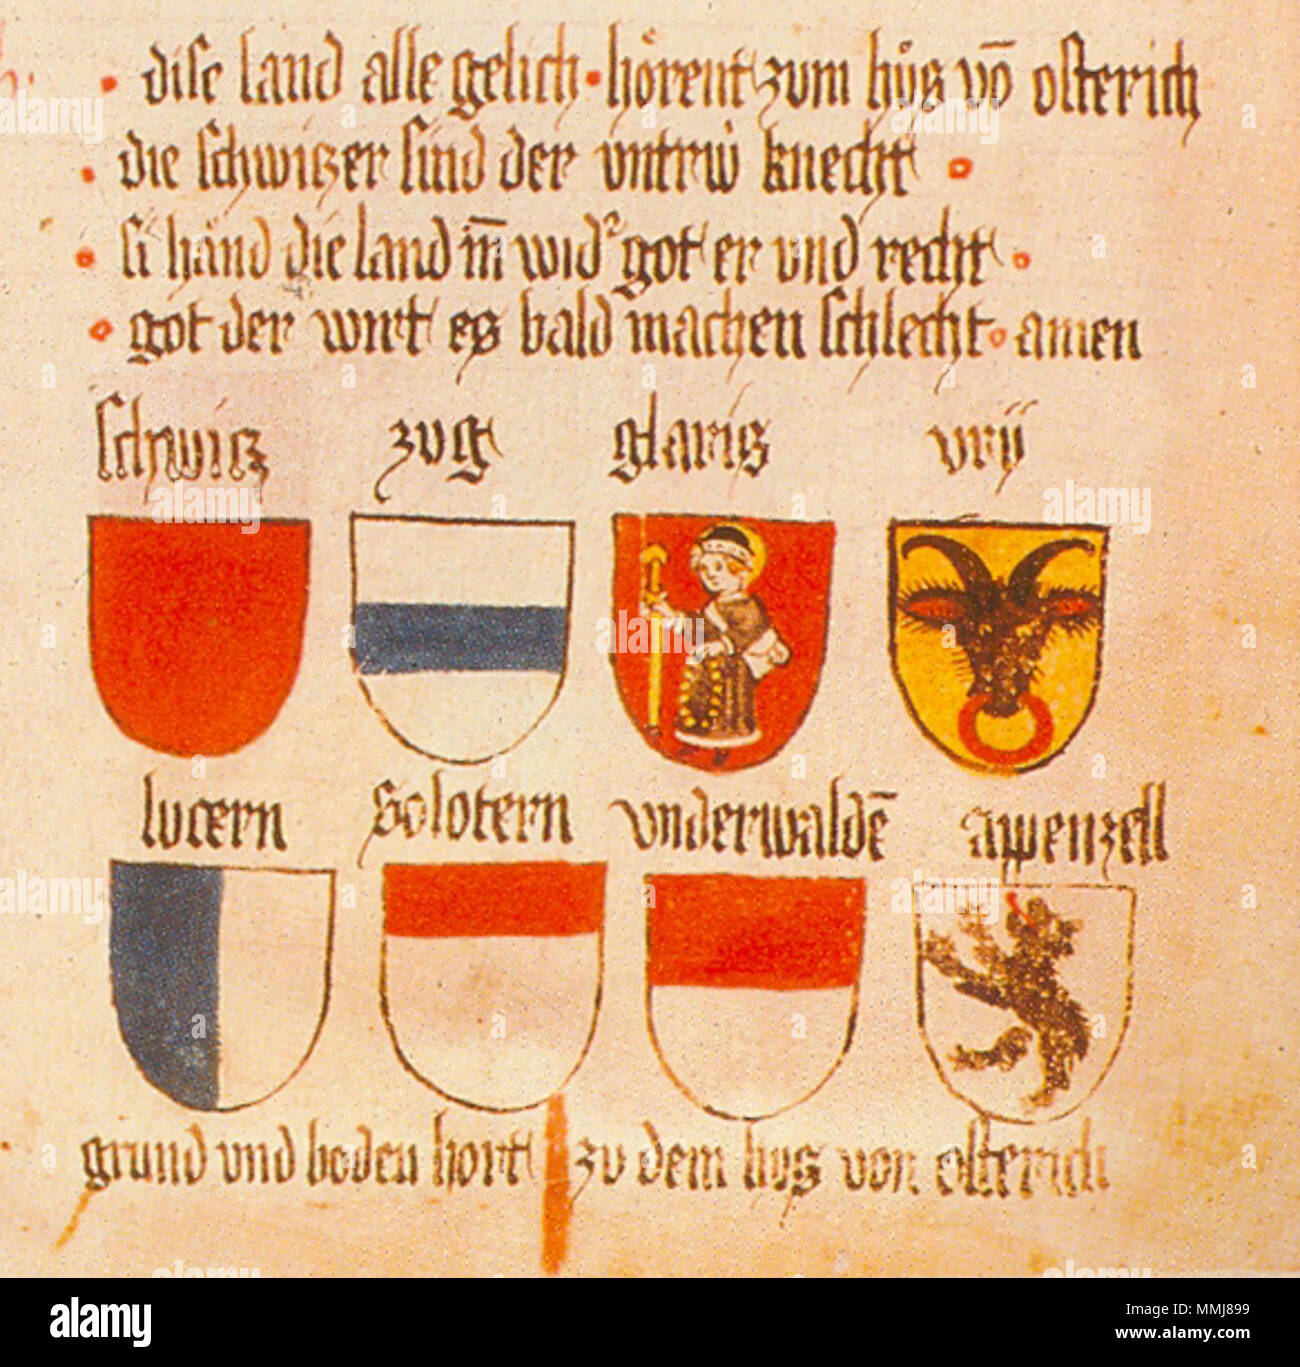 dise land alle gelich · hörent zum hůs vō osterich
die schwitzer sind der vntrw knecht
si händ die land in̄ wid' got er und recht
got der wirt es bald machen schlecht · amen
schwitz zug glaris vrij
lucern solotern vnderwaldē appenzell
grund vnd boden hort zu dem hus von osterich
alamy
Image ID: MMJ899
www.alamy.com